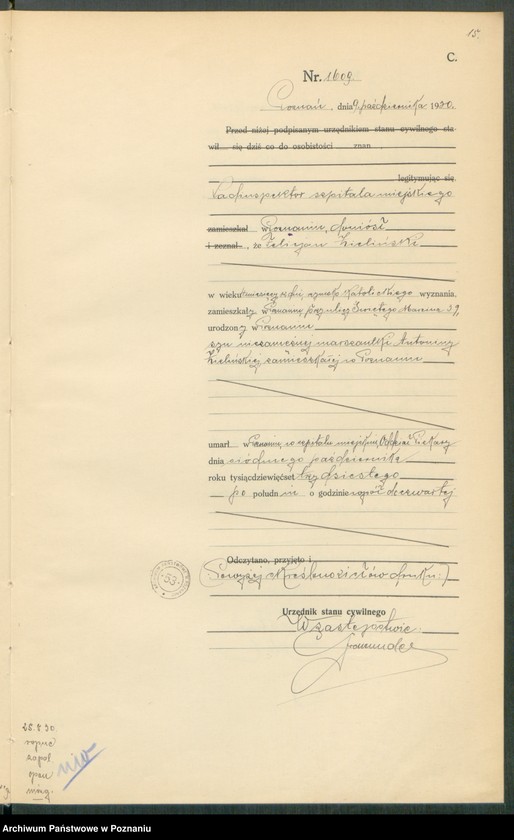 15.
C.
Nr. 1609.
Poznań, dnia 9 października 1930.
Przed niżej podpisanym urzędnikiem stanu cywilnego sta
wił się dziś co do osobistości znan
legitymując się
Nadinspektor szpitala miejskiego
zamieszkał w Poznaniu, doniósł
i zeznał, że Felicjan Zieliński
w wieku dni, rzymsko katolickiego wyznania,
zamieszkały w Poznaniu, przy ulicy Świętego Marcina 37,
urodzony w Poznaniu
syn niezamężnej Antoniny
Zielińskiej zamieszkałej w Poznaniu
umarł w Poznaniu, w szpitalu miejskim, Oddział Piekary
dnia siódmego października
roku tysiącdziewięćset trzydziestego
po południu o godzinie wpół do czwartej
Odczytano, przyjęto i
(Powyżej skreślono słów druku.)
Urzędnik stanu cywilnego
W zastępstwie
53
28.8.30.
ropne
zapal.
opon
mózg.
Archiwum Państwowe w Poznaniu